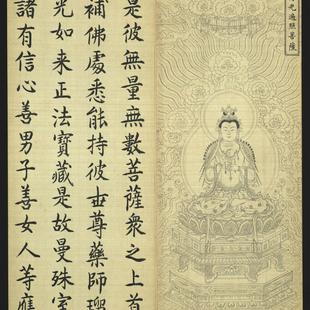 光遍照菩薩
是彼無量無數菩薩衆之上首
補佛處悉能持彼世尊藥師瑠
光如来正法寶藏是故曼殊室
諸有信心善男子善女人等應